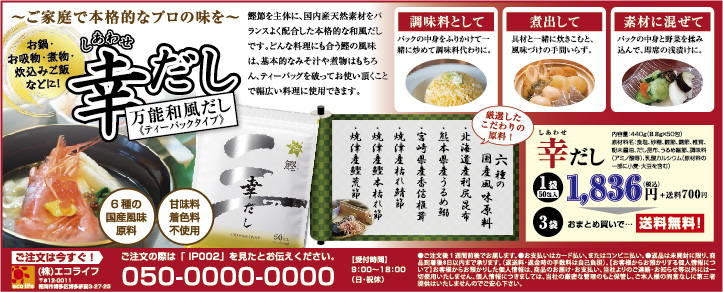 ～ご家庭で本格的なプロの味を～
お鍋・
お吸物・煮物・
炊込みご飯
などに!
しあわせ
幸だし
万能和風だし
〈ティーパックタイプ〉
6種の
国産風味
原料
甘味料
着色料
不使用
幸だし
鰹節を主体に、国内産天然素材をバ
ランスよく配合した本格的な和風だし
です。どんな料理にも合う鰹の風味
は、基本的なみそ汁や煮物はもちろ
ん、ティーバッグを破ってお使い頂くこと
で幅広い料理に使用できます。
調味料として
パックの中身をふりかけて一
緒に炒めて調味料代わりに。
煮出して
具材と一緒に炊きこむと、
風味づけの手間いらず。
素材に混ぜて
パックの中身と野菜を揉み
込んで、即席の浅漬けに。
厳選した
こだわりの
原料!
六種の
国産風味原料
・北海道産利尻昆布
・熊本県産うるめ鰯
・宮崎県産香信椎茸
・焼津産枯れ鯖節
・焼津産鰹本枯れ節
・焼津産鰹荒節
しあわせ
幸だし
内容量:440g(8.8g×50包)
原材料名:食塩、砂糖、鰹節、鯖節、椎茸、
粉末醤油、だし昆布、うるめ鰯節、調味料
(アミノ酸等)、乳酸カルシウム、(原材料の
一部に小麦・大豆を含む)
1袋
50包入
1,836円(税込)
+送料700円
3袋
おまとめ買いで…
送料無料!
ご注文は今すぐ!
eco life
(株)エコライフ
〒812-0011
福岡市博多区博多駅前3-27-25
ご注文の際は「IP002」を見たとお伝えください。
050-0000-0000
【受付時間】
9:00～18:00
(日・祝休)
●ご注文後1週間前後でお届します。●お支払いはカード払い、またはコンビニ払い。●返品は未開封に限り、商
品到着後8日以内まで承ります。(返送料・返金時の手数料は自己負担)。【お客様からお預かりする個人情報につ
いて】お客様からお預かりした個人情報は、商品のお届け・お支払い、当社よりのご連絡・お知らせ等以外には一
切使用いたしません。個人情報につきましては、当社の厳密な管理のもと保管し、ご本人様の同意なしに第三者
提供はいたしませんのでご安心下さい。